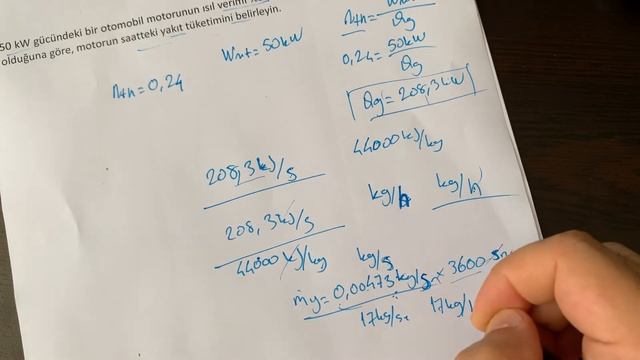 50 kW gücündeki bir otomobil motorunun ısıl verimi
olduğuna göre, motorun saatteki yakıt tüketimini belirleyin.
ηth = 0,24
Wnet = 50kW
ηth = 
Qg
0,24 = 50kW
Qg
Qg = 208,3kW
44000kJ/kg
208,3kJ/s
kg/h kg/h
208,3kJ/s
44000kJ/kg
kg/s
ṁy = 0,00473kg/sn × 3600
17kg/sa 17kg/